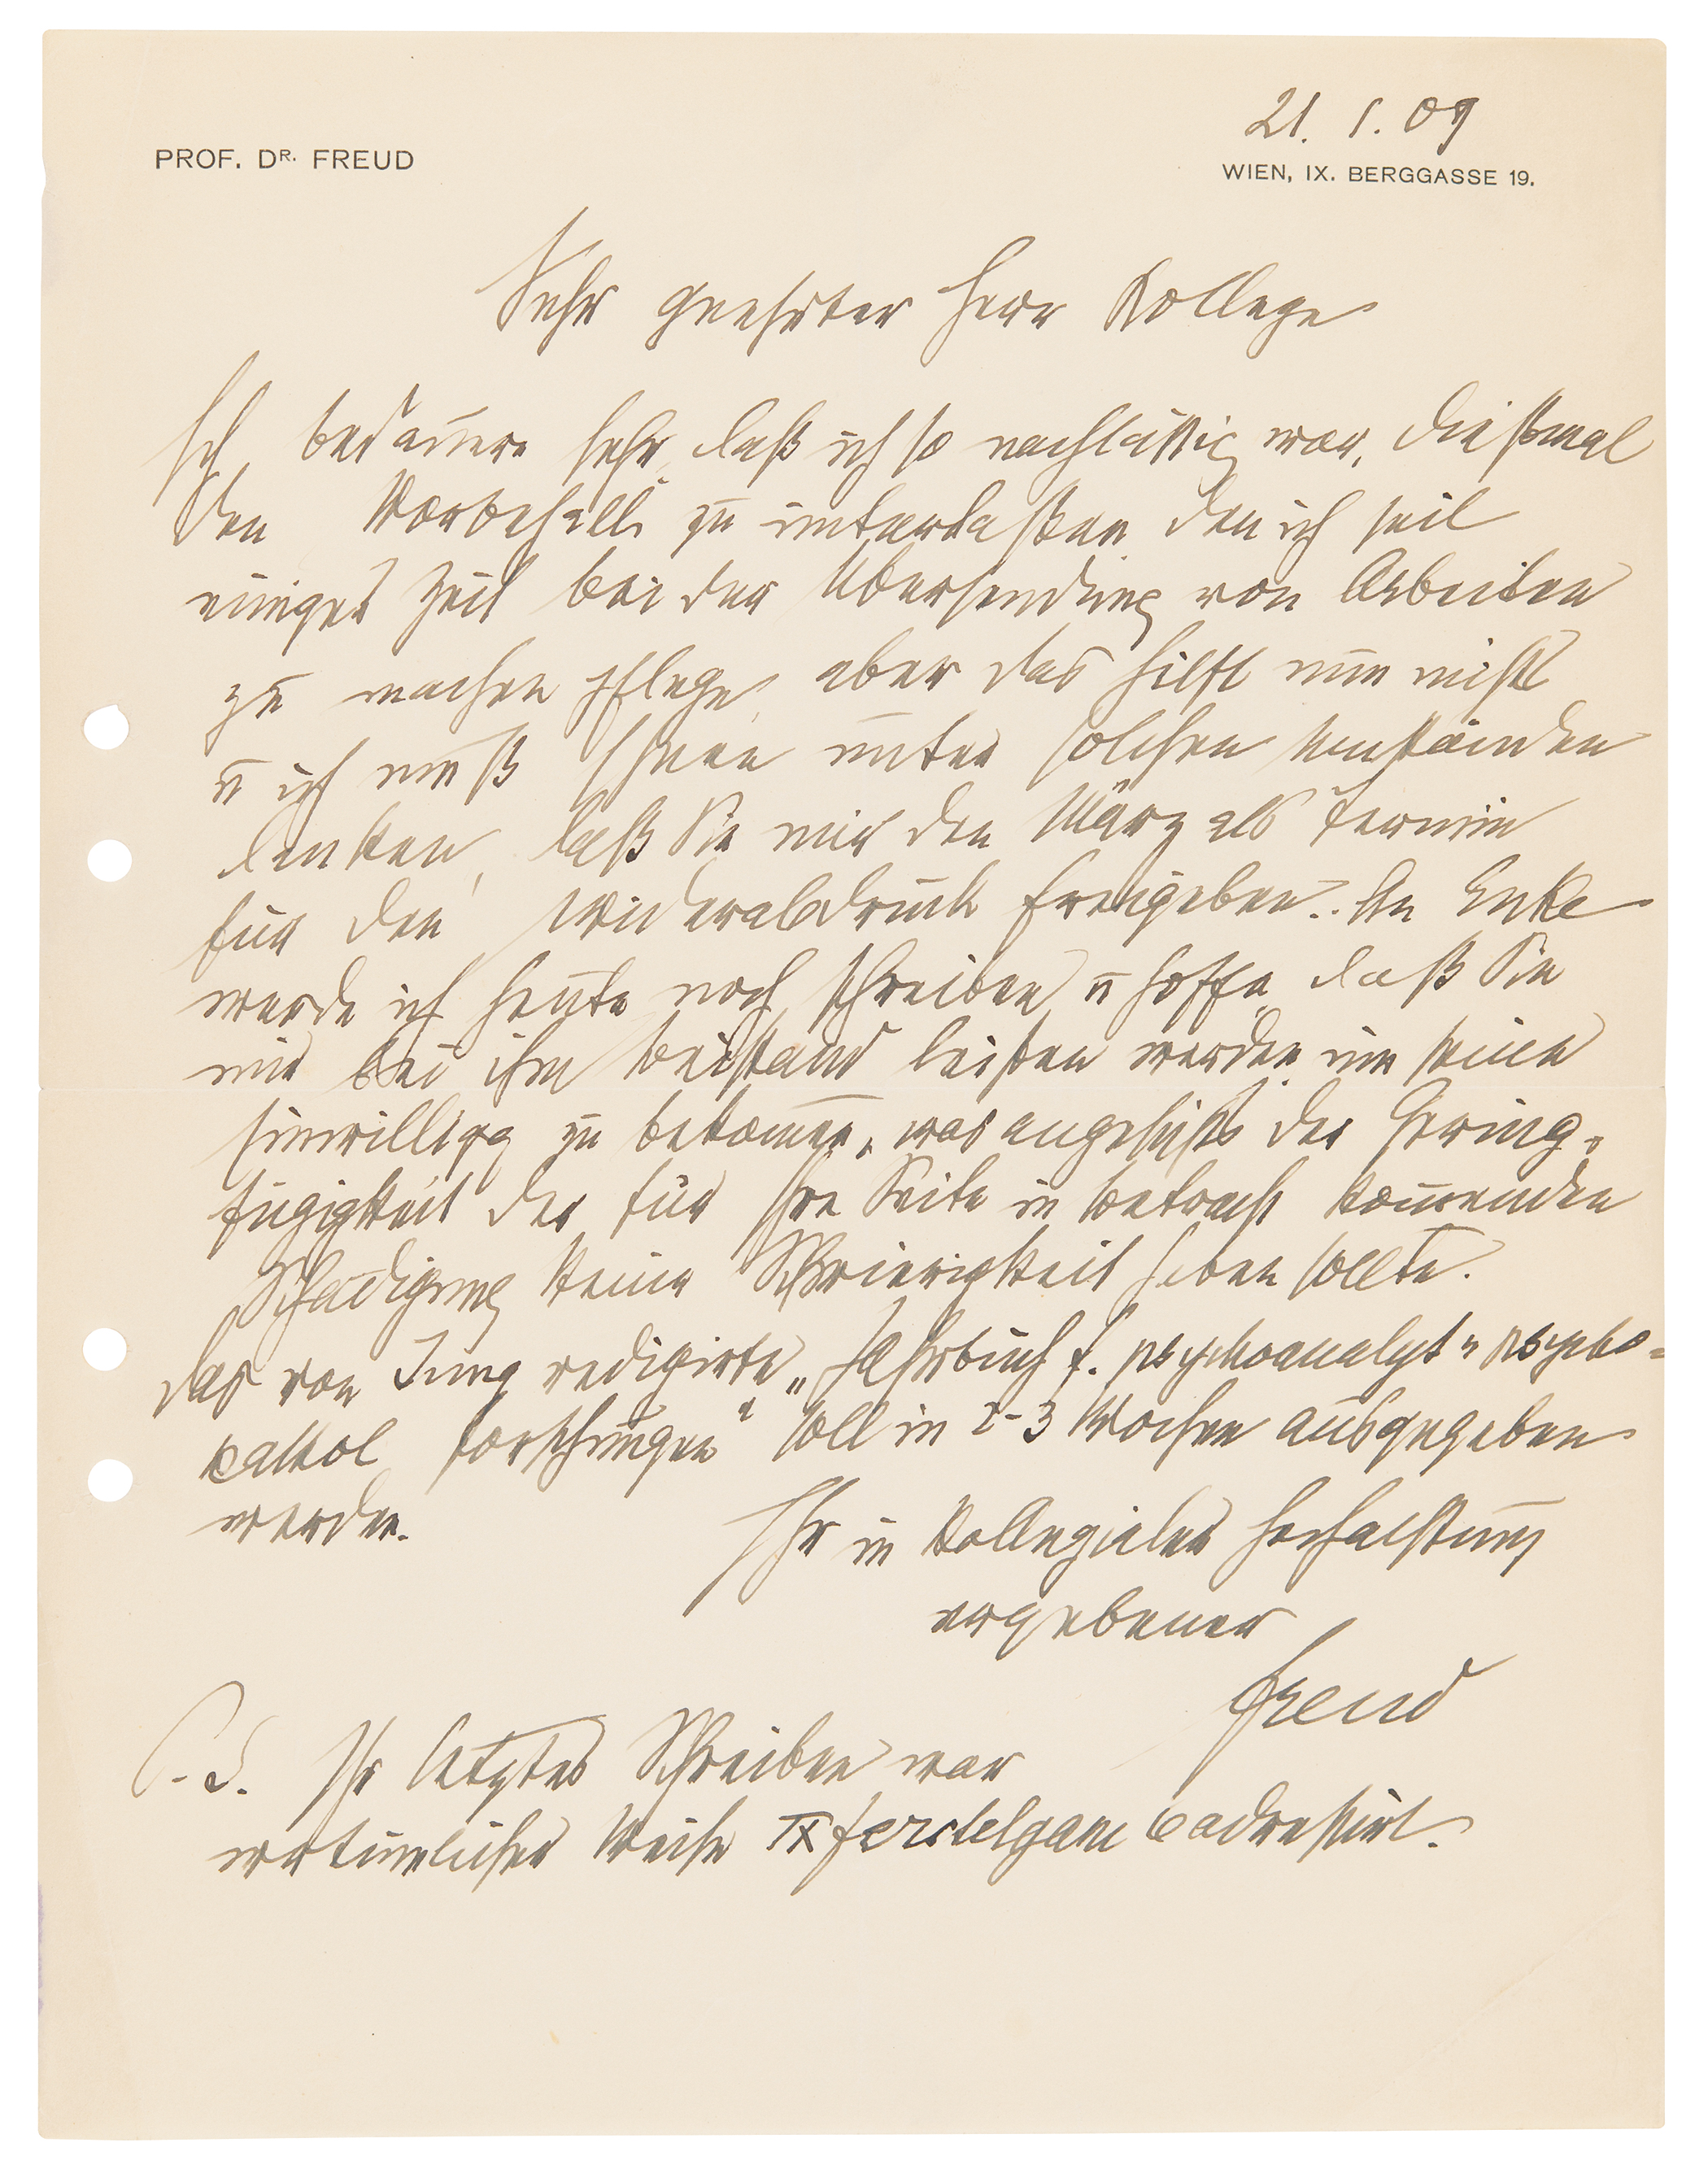 21. 1. 09
PROF. DR. FREUD
WIEN, IX. BERGGASSE 19.
Sehr geehrter Herr Kollege
Ich bedauere sehr, daß ich so nachläßig war, dießmal
den Vorbehalt zu unterlaßen den ich seit
einiger Zeit bei der Übersendung von Arbeiten
zu machen pflege, aber das hilft nun nichts
u ich muß Ihnen unter solchen Umständen
danken, daß Sie mir den März als Termin
für den Wiederabdruck freigeben. An Enke
werde ich heute noch schreiben u hoffe, daß Sie
mir bei ihm Beistand leisten werden um seine
Einwilligg zu bekommen, was angesichts der Gering-
fügigkeit der für Ihre Seite in Betracht kommenden
Schädigung keine Schwierigkeit haben sollte.
Das von Jung redigirte „Jahrbuch f. psychoanalyt u psycho-
pathol Forschungen“ soll in 2-3 Wochen ausgegeben
werden.
Ihr in kollegialer Hochachtung
ergebener
Freud
P.S. Ihr letztes Schreiben war
irrtümlicher Weise IX Ferstelgasse adressirt.